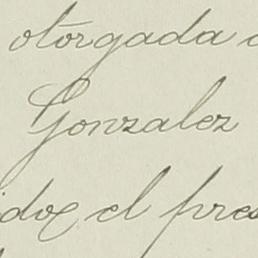 otorgada
Gonzalez
el pres